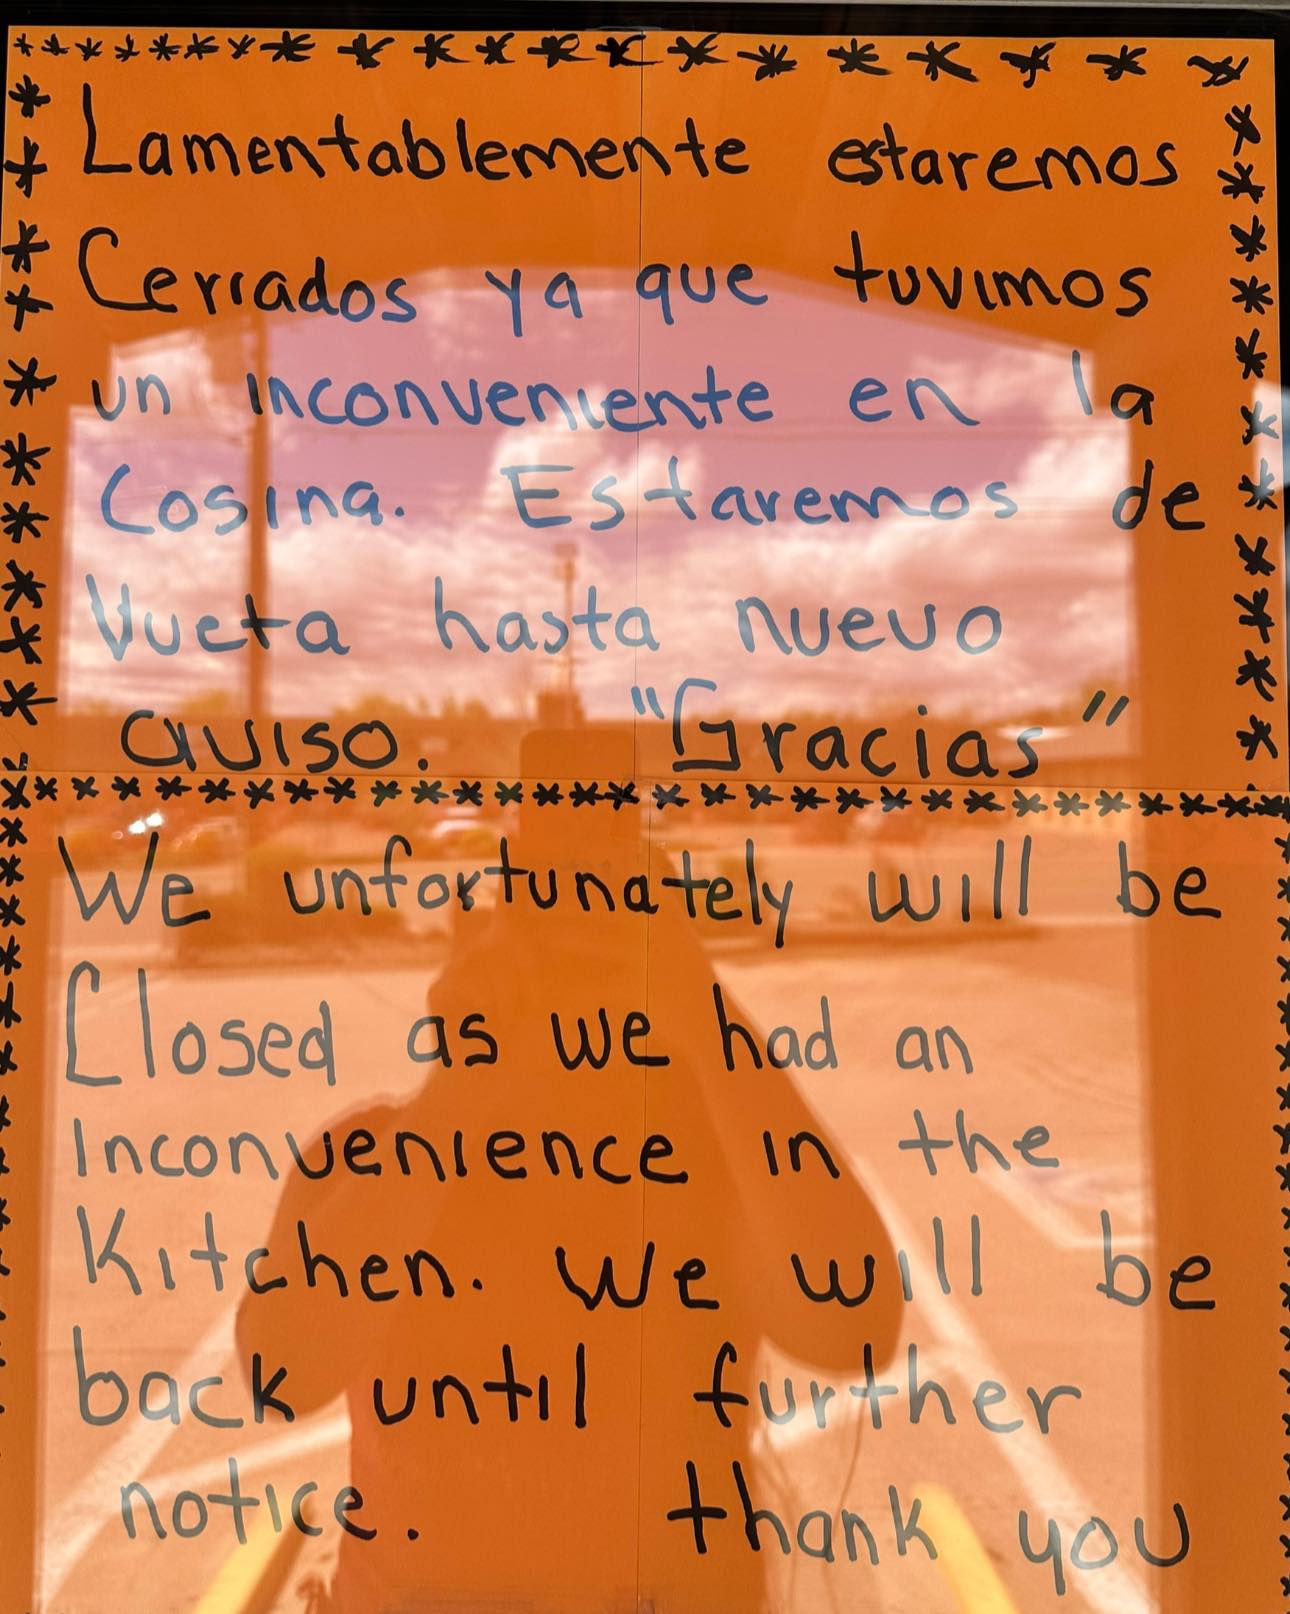 Lamentablemente estaremos
Cerrados ya que tuvimos
un inconveniente en la
Cosina. Estaremos de
Vueta hasta nuevo
aviso. "Gracias"
We unfortunately will be
Closed as we had an
Inconvenience in the
Kitchen. We will be
back until further
notice. thank you